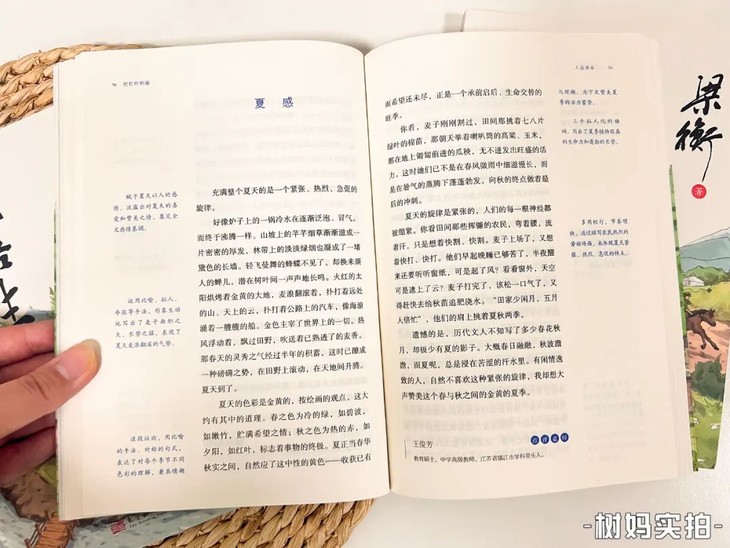 夏 感
赋予夏天以人的感
情，流露出对夏天的喜
爱和赞美之情，奠定全
文感情基调。
充满整个夏天的是一个紧张、热烈、急促的
旋律。
好像炉子上的一锅冷水在逐渐泛泡、冒气，
而终于沸腾一样，山坡上的芊芊细草渐渐滋成一
片密密的厚发，林带上的淡淡绿烟也凝成了一堵
黛色的长墙。轻飞曼舞的蜂蝶不见了，却换来烦
人的蝉儿，潜在树叶间一声声地长鸣。火红的太
阳烘烤着金黄的大地，麦浪翻滚着，扑打着远处
的山、天上的云，扑打着公路上的汽车，像海浪
涌着一艘艘的船。金色主宰了世界上的一切，热
风浮动着，飘过田野，吹送着已熟透了的麦香。
那春天的灵秀之气经过半年的积蓄，这时已酿成
一种磅礴之势，在田野上滚动，在天地间升腾。
夏天到了。
运用比喻、拟人、
夸张等手法，形象生动
地写出了麦子面积之
大、长势之猛，表现了
夏天麦浪翻滚的气势。
夏天的色彩是金黄的，按绘画的观点，这大
约有其中的道理。春之色为冷的绿，如碧波，
如嫩竹，贮满希望之情；秋之色为热的赤，如
夕阳，如红叶，标志着事物的终极。夏正当春华
秋实之间，自然应了这中性的黄色——收获已有
这段议论，用比喻
的手法、对称的句式，
表达了对每个季节不同
色彩的理解，兼具情趣
人益课本
而希望还未尽，正是一个承前启后、生命交替的
旺季。
与理趣，为下文赞美夏
季的活力蓄势。
你看，麦子刚刚割过，田间那挑着七八片
绿叶的棉苗，那朝天举着喇叭筒的高粱、玉米，
那在地上匍匐前进的瓜秧，无不迸发出旺盛的活
力。这时她们已不是在春风微雨中细滋慢长，而
是在暑气的蒸腾下蓬蓬勃发，向秋的终点做着最
后的冲刺。
三个拟人化的动
词，写出了夏季植物旺盛
的生命力和蓬勃的长势。
夏天的旋律是紧张的，人们的每一根神经都
被绷紧。你看田间那些挥镰的农民，弯着腰，流
着汗，只是想着快割，快割。麦子上场了，又想
着快打、快打。他们早起晚睡已够苦了，半夜醒
来还要听听窗纸，可是起了风？看看窗外，天空
可是遮上了云？麦子打完了，该松一口气了，又
得赶快去给秋苗追肥浇水。“田家少闲月，五月
人倍忙”，他们的肩上挑着夏秋两季。
遗憾的是，历代文人不知写了多少春花秋
月，却极少有夏的影子。大概春日融融，秋波澹
澹，而夏呢，总是浸在苦涩的汗水里。有闲情逸
致的人，自然不喜欢这种紧张的旋律，我却想大
声赞美这个春与秋之间的金黄的夏季。
点评老师
王俊芳
教育硕士，中学高级教师，江苏省镇江市学科带头人。
梁衡
著
-树妈实拍-